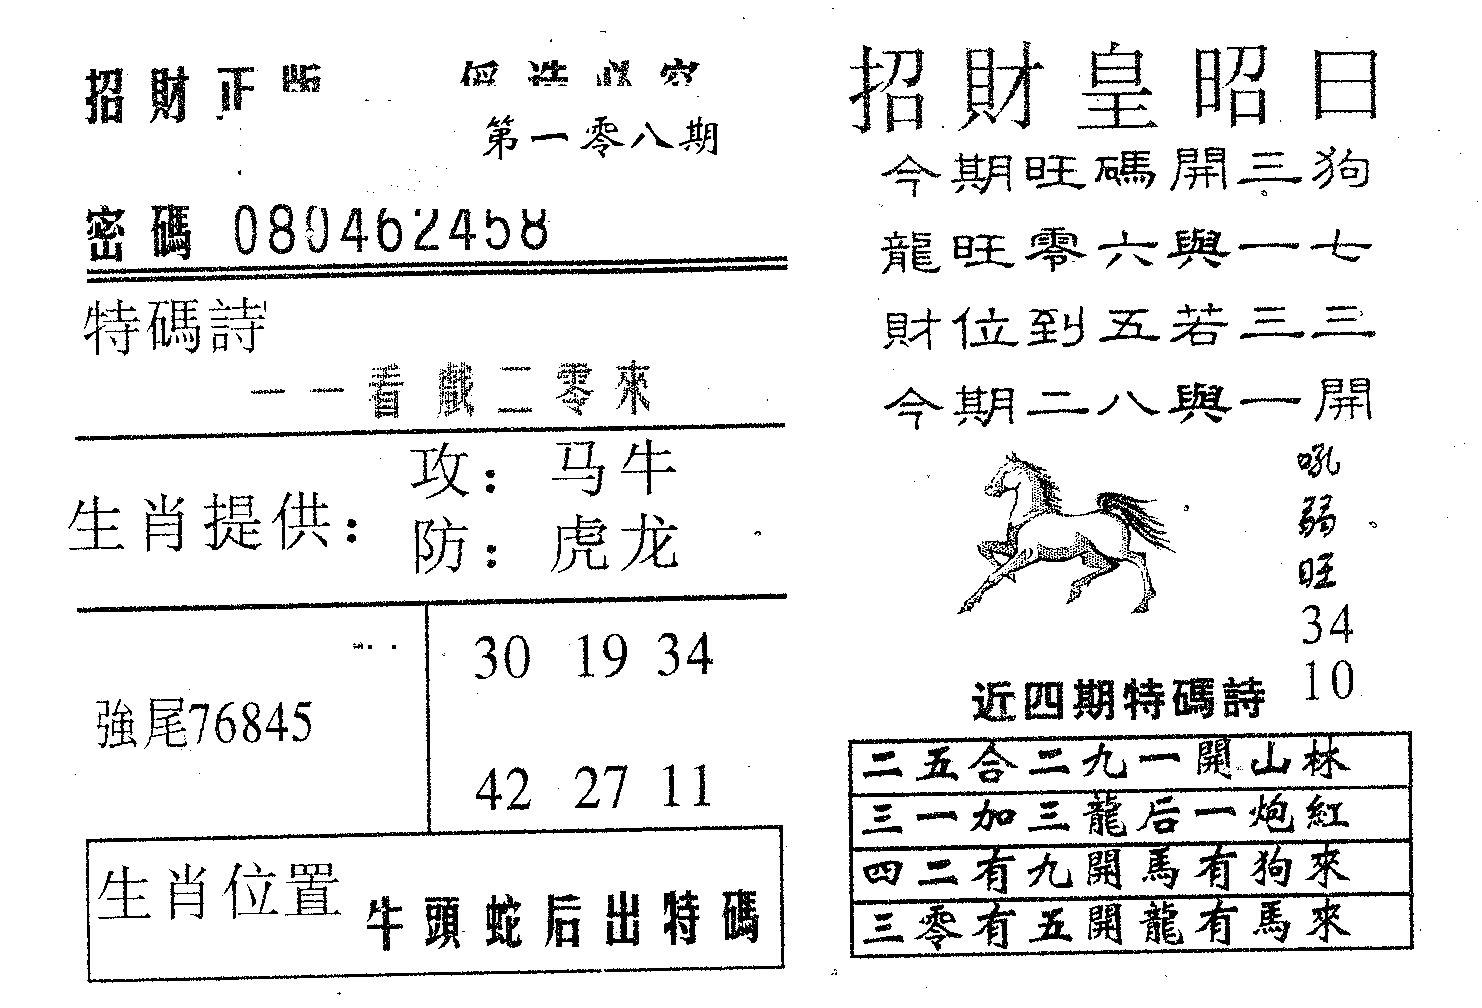 招財正版 假造必究
第一零八期
密碼 080462458
特碼詩
一一看戲二零來
生肖提供：
攻：马牛
防：虎龙
強尾76845
30 19 34
42 27 11
生肖位置 牛頭蛇后出特碼
招財皇昭日
今期旺碼開三狗
龍旺零六與一七
財位到五若三三
今期二八與一開
吼弱旺
34
10
近四期特碼詩
二五合二九一開山林
三一加三龍后一炮紅
四二有九開馬有狗來
三零有五開龍有馬來